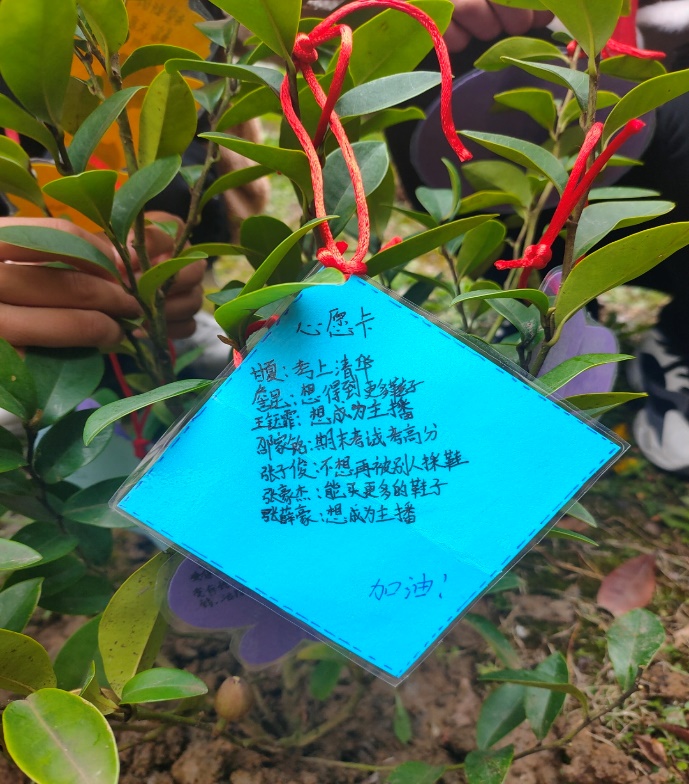 心愿卡
甘夏:考上清华
想得到更多鞋子
想成为主播
邵家铭:期末考试考高分
张子俊:不想再被别人踩鞋
张家杰:能买更多的鞋子
张薛豪:想成为主播
加油!